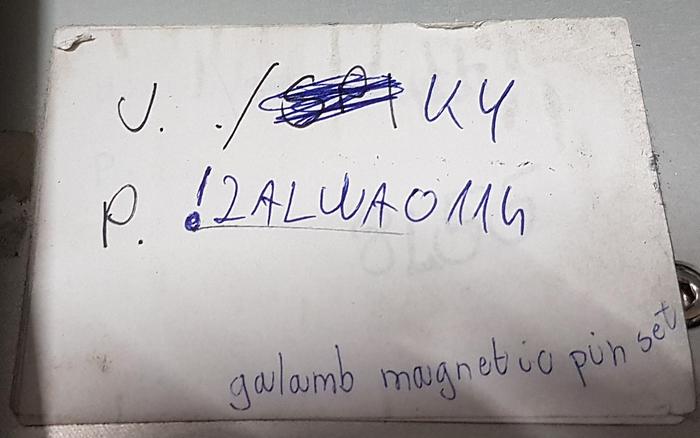 U. ./ KY
P. !2ALWA0114
galamb magnetic pin set